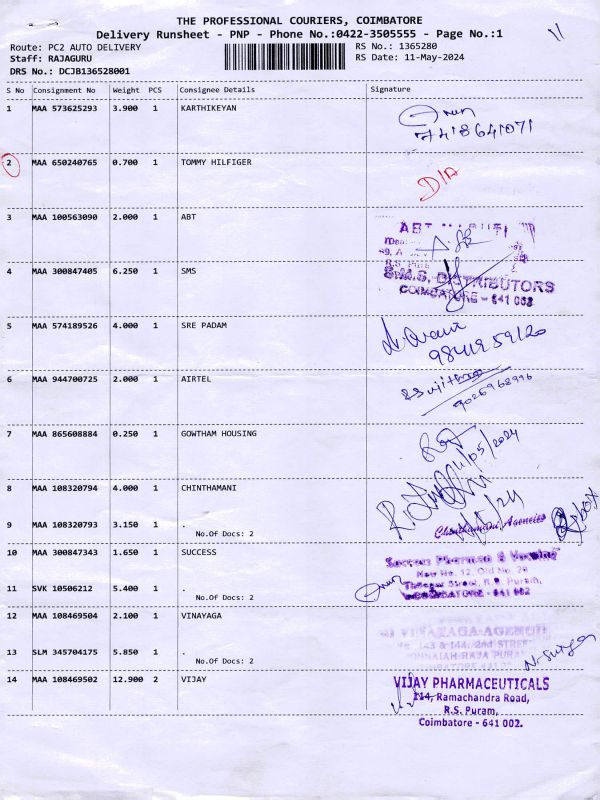 THE PROFESSIONAL COURIERS, COIMBATORE
Delivery Runsheet - PNP - Phone No.:0422-3505555 - Page No.:1
Route: PC2 AUTO DELIVERY
Staff: RAJAGURU
DRS No.: DCJB136528001
RS No.: 1365280
RS Date: 11-May-2024
S No Consignment No Weight PCS Consignee Details Signature
1 MAA 573625293 3.900 1 KARTHIKEYAN
7418641071
2 MAA 650240765 0.700 1 TOMMY HILFIGER
D/A
3 MAA 100563090 2.000 1 ABT
ABT
4 MAA 300847405 6.250 1 SMS
S.M.S. DISTRIBUTORS
COIMBATORE - 641 002
5 MAA 574189526 4.000 1 SRE PADAM
6 MAA 944700725 2.000 1 AIRTEL
7 MAA 865608884 0.250 1 GOWTHAM HOUSING
11/05/2024
8 MAA 108320794 4.000 1 CHINTHAMANI
9 MAA 108320793 3.150 1 .
No.Of Docs: 2
Chinthamani Agencies
10 MAA 300847343 1.650 1 SUCCESS
Success Pharma
New No. 12, Old No. 29
Street, R.S. Puram,
COIMBATORE - 641 002
11 SVK 10506212 5.400 1 .
No.Of Docs: 2
12 MAA 108469504 2.100 1 VINAYAGA
VINAYAGA
143 & 144, 2nd STREET
13 SLM 345704175 5.850 1 .
No.Of Docs: 2
14 MAA 108469502 12.900 2 VIJAY
VIJAY PHARMACEUTICALS
114, Ramachandra Road,
R.S. Puram,
Coimbatore - 641 002.